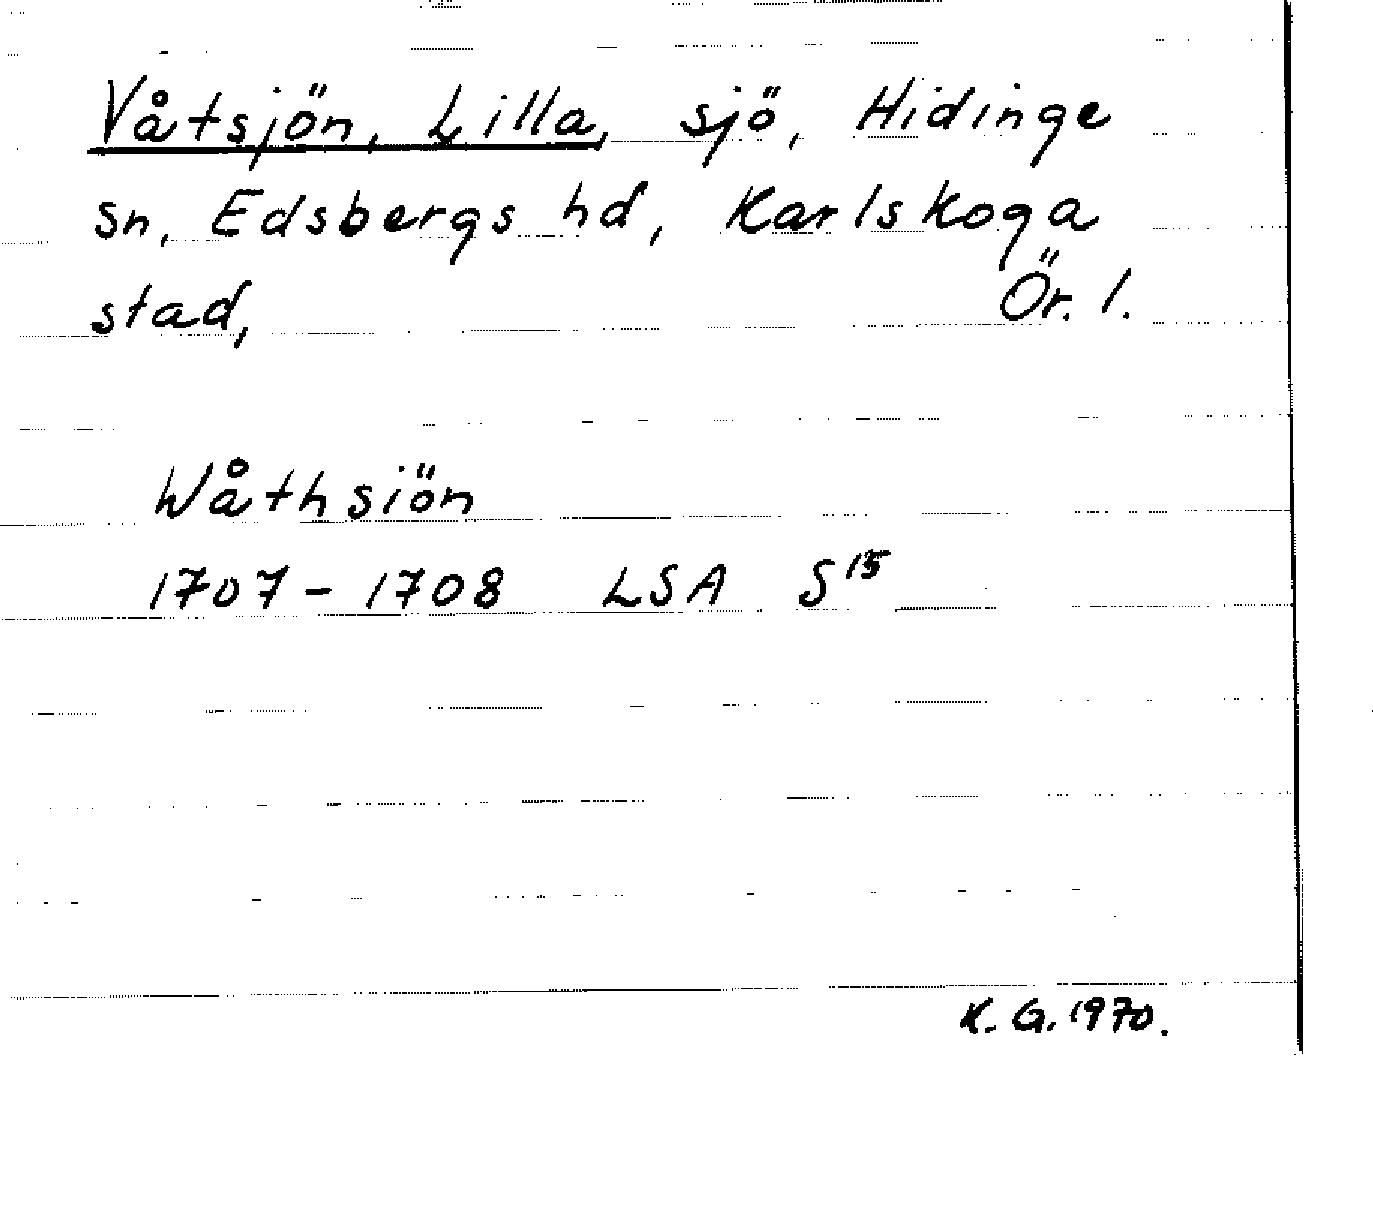 Våtsjön, Lilla, sjö, Hidinge
sn, Edsbergs hd, Karlskoga
stad, Ör. l.
Wåthsiön
1707-1708 LSA S¹⁵
K. G. 1970.